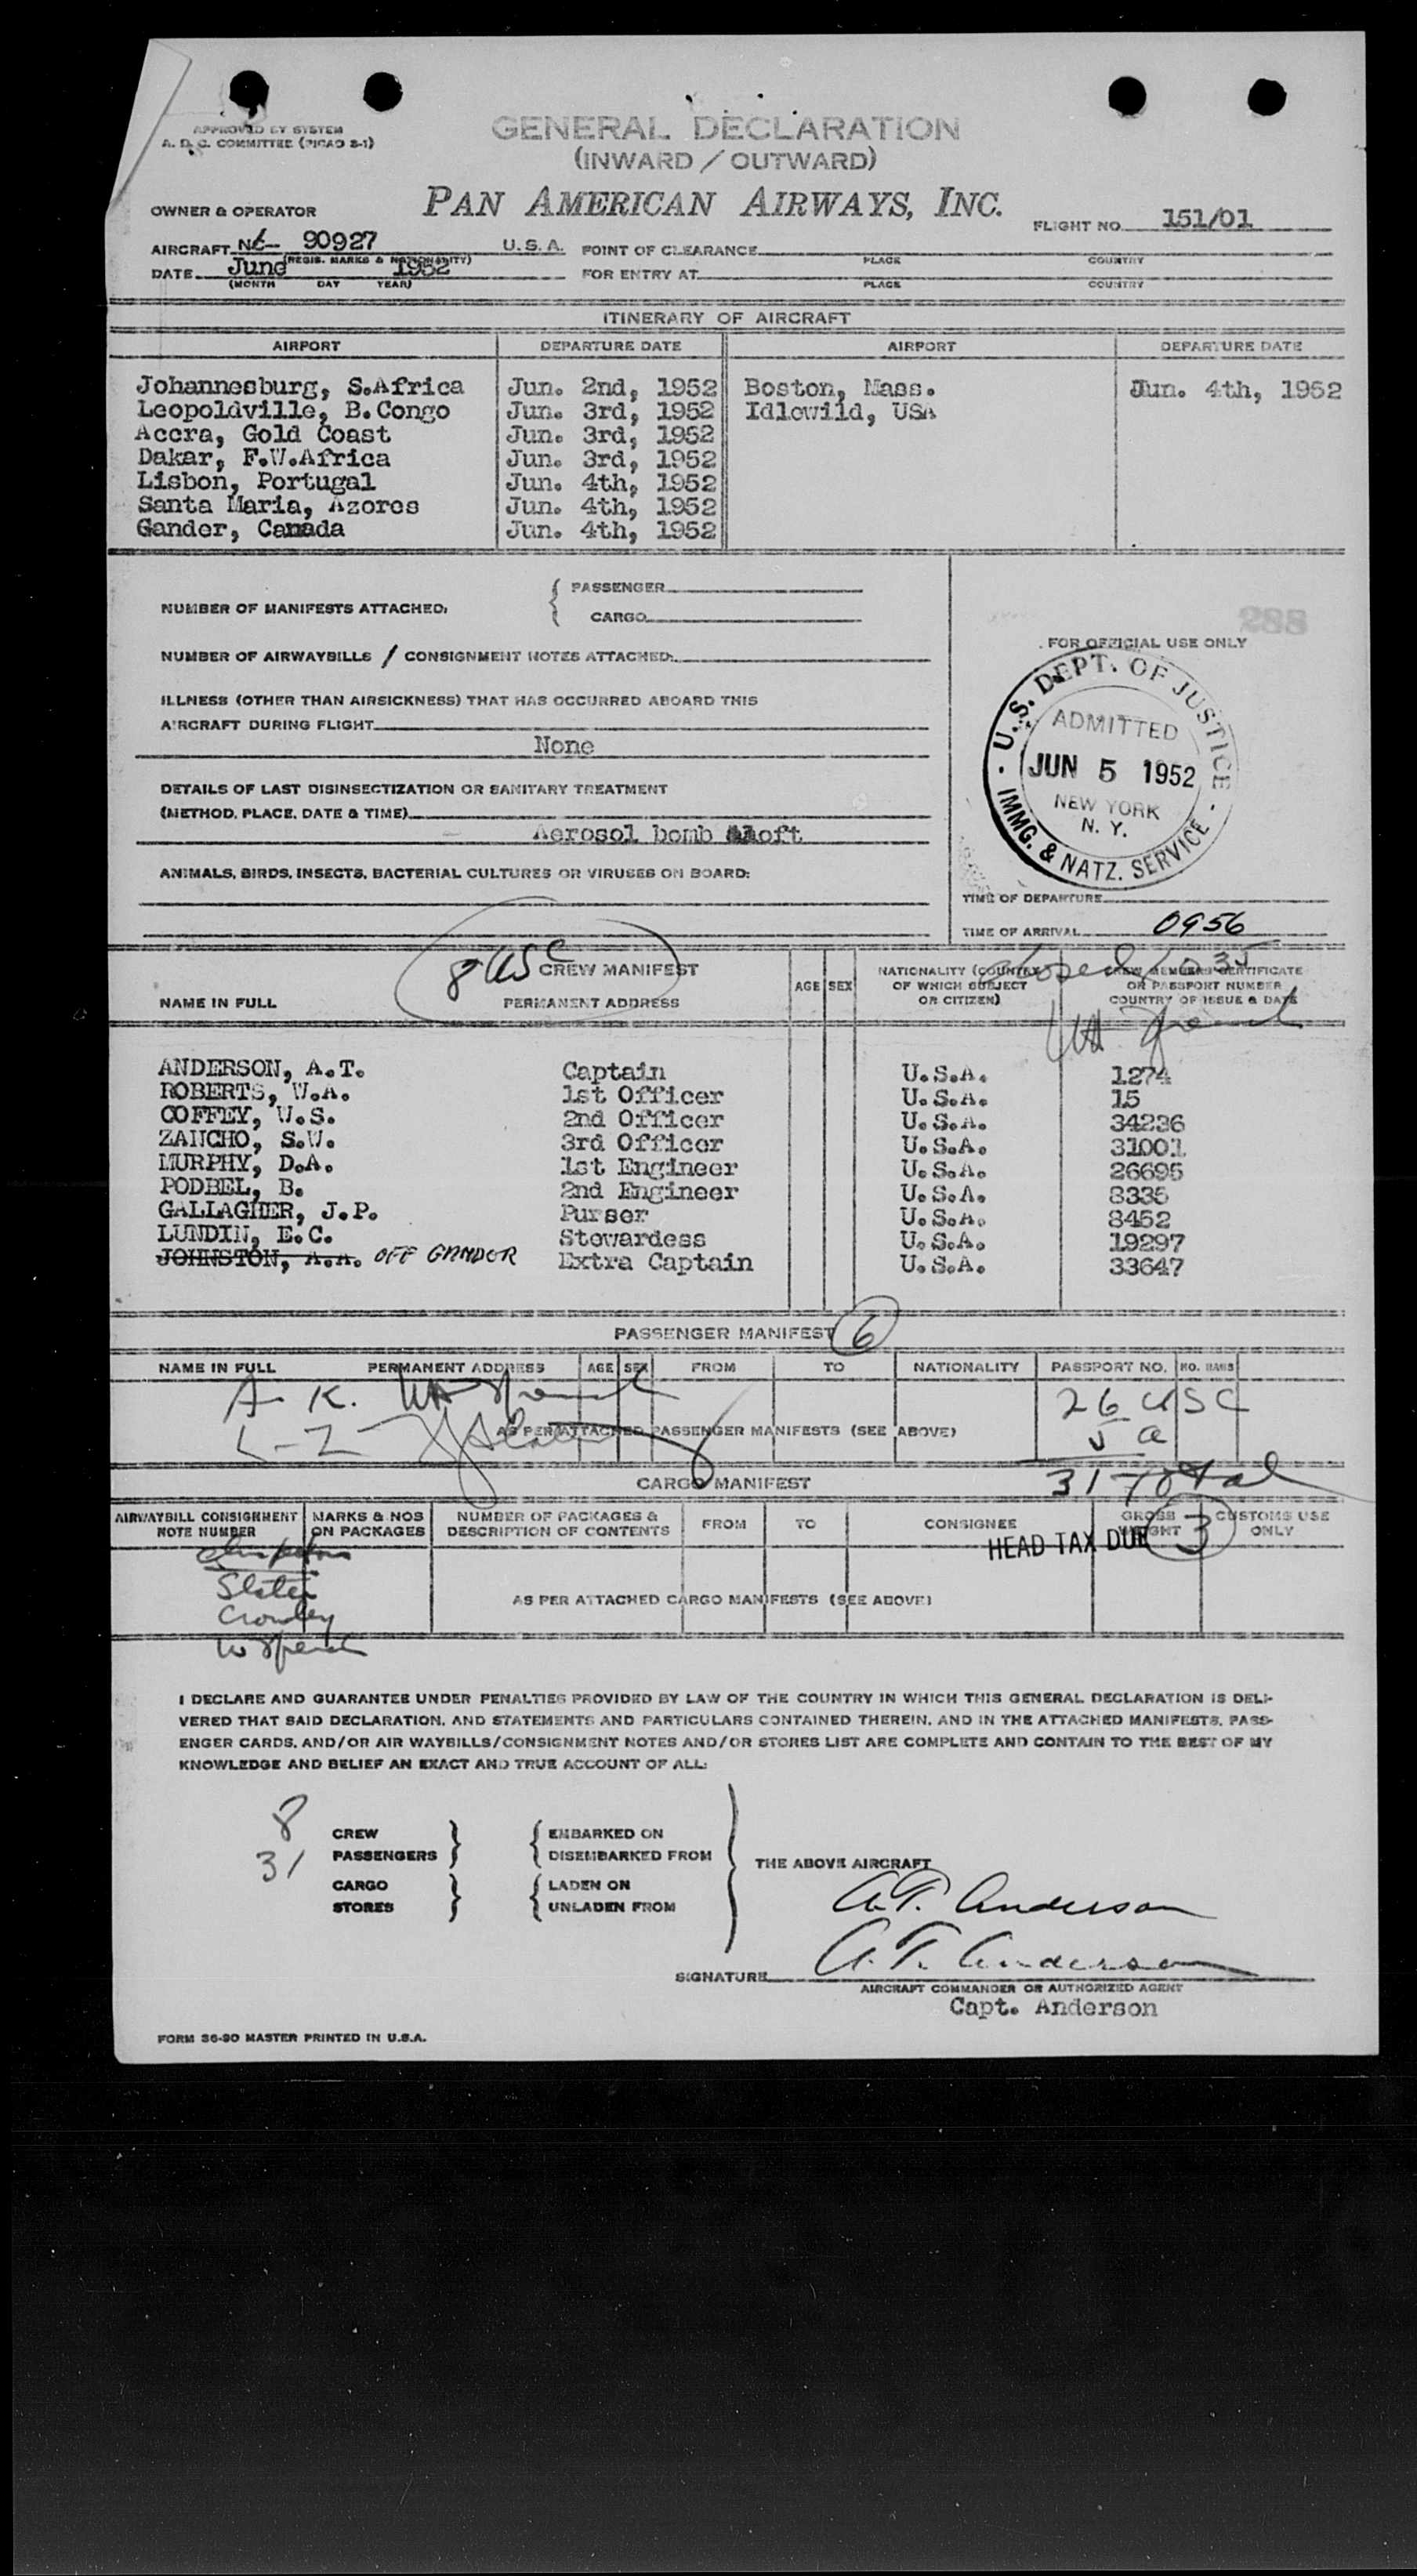 APPROVED BY SYSTEM
A. D. C. COMMITTEE (PICAO S-1)
GENERAL DECLARATION
(INWARD / OUTWARD)
OWNER & OPERATOR PAN AMERICAN AIRWAYS, INC. FLIGHT NO. 151/01
AIRCRAFT 90927 U. S. A. POINT OF CLEARANCE
(REGIS. MARKS & NATIONALITY) PLACE COUNTRY
DATE June 1952 FOR ENTRY AT
(MONTH DAY YEAR) PLACE COUNTRY
ITINERARY OF AIRCRAFT
AIRPORT DEPARTURE DATE AIRPORT DEPARTURE DATE
Johannesburg, S.Africa Jun. 2nd, 1952 Boston, Mass. Jun. 4th, 1952
Leopoldville, B.Congo Jun. 3rd, 1952 Idlewild, USA
Accra, Gold Coast Jun. 3rd, 1952
Dakar, F.W.Africa Jun. 3rd, 1952
Lisbon, Portugal Jun. 4th, 1952
Santa Maria, Azores Jun. 4th, 1952
Gander, Canada Jun. 4th, 1952
NUMBER OF MANIFESTS ATTACHED: PASSENGER
CARGO
288
FOR OFFICIAL USE ONLY
NUMBER OF AIRWAYBILLS / CONSIGNMENT NOTES ATTACHED:
ILLNESS (OTHER THAN AIRSICKNESS) THAT HAS OCCURRED ABOARD THIS
AIRCRAFT DURING FLIGHT
None
DETAILS OF LAST DISINSECTIZATION OR SANITARY TREATMENT
(METHOD, PLACE, DATE & TIME)
Aerosol bomb Aloft
ANIMALS, BIRDS, INSECTS, BACTERIAL CULTURES OR VIRUSES ON BOARD:
U. S. DEPT. OF JUSTICE
ADMITTED
JUN 5 1952
NEW YORK
N. Y.
IMMG. & NATZ. SERVICE
TIME OF DEPARTURE
TIME OF ARRIVAL 0956
closed 1035
8 USC CREW MANIFEST
NAME IN FULL PERMANENT ADDRESS AGE SEX NATIONALITY (COUNTRY OF WHICH SUBJECT OR CITIZEN) CREW MEMBERS CERTIFICATE OR PASSPORT NUMBER COUNTRY OF ISSUE & DATE
ANDERSON, A.T. Captain U.S.A. 1274
ROBERTS, W.A. 1st Officer U.S.A. 15
COFFEY, W.S. 2nd Officer U.S.A. 34236
ZANCHO, S.W. 3rd Officer U.S.A. 31001
MURPHY, D.A. 1st Engineer U.S.A. 26695
PODBEL, B. 2nd Engineer U.S.A. 8335
GALLAGHER, J.P. Purser U.S.A. 8452
LUNDIN, E.C. Stewardess U.S.A. 19297
JOHNSTON, A.A. OFF GANDER Extra Captain U.S.A. 33647
PASSENGER MANIFEST 6
NAME IN FULL PERMANENT ADDRESS AGE SEX FROM TO NATIONALITY PASSPORT NO. NO. BAGS
A - K. 26 USC
L - Z AS PER ATTACHED PASSENGER MANIFESTS (SEE ABOVE) 5 a
CARGO MANIFEST 31 total
AIRWAYBILL CONSIGNMENT NOTE NUMBER MARKS & NOS ON PACKAGES NUMBER OF PACKAGES & DESCRIPTION OF CONTENTS FROM TO CONSIGNEE GROSS WEIGHT CUSTOMS USE ONLY
HEAD TAX DUE 3
Inspectors
Slater
AS PER ATTACHED CARGO MANIFESTS (SEE ABOVE)
Crowley
I DECLARE AND GUARANTEE UNDER PENALTIES PROVIDED BY LAW OF THE COUNTRY IN WHICH THIS GENERAL DECLARATION IS DELI-
VERED THAT SAID DECLARATION, AND STATEMENTS AND PARTICULARS CONTAINED THEREIN, AND IN THE ATTACHED MANIFESTS, PASS-
ENGER CARDS, AND/OR AIR WAYBILLS/CONSIGNMENT NOTES AND/OR STORES LIST ARE COMPLETE AND CONTAIN TO THE BEST OF MY
KNOWLEDGE AND BELIEF AN EXACT AND TRUE ACCOUNT OF ALL:
8 CREW EMBARKED ON
31 PASSENGERS DISEMBARKED FROM
THE ABOVE AIRCRAFT
CARGO LADEN ON
STORES UNLADEN FROM
A.T. Anderson
SIGNATURE A.T. Anderson
AIRCRAFT COMMANDER OR AUTHORIZED AGENT
Capt. Anderson
FORM 36-90 MASTER PRINTED IN U.S.A.